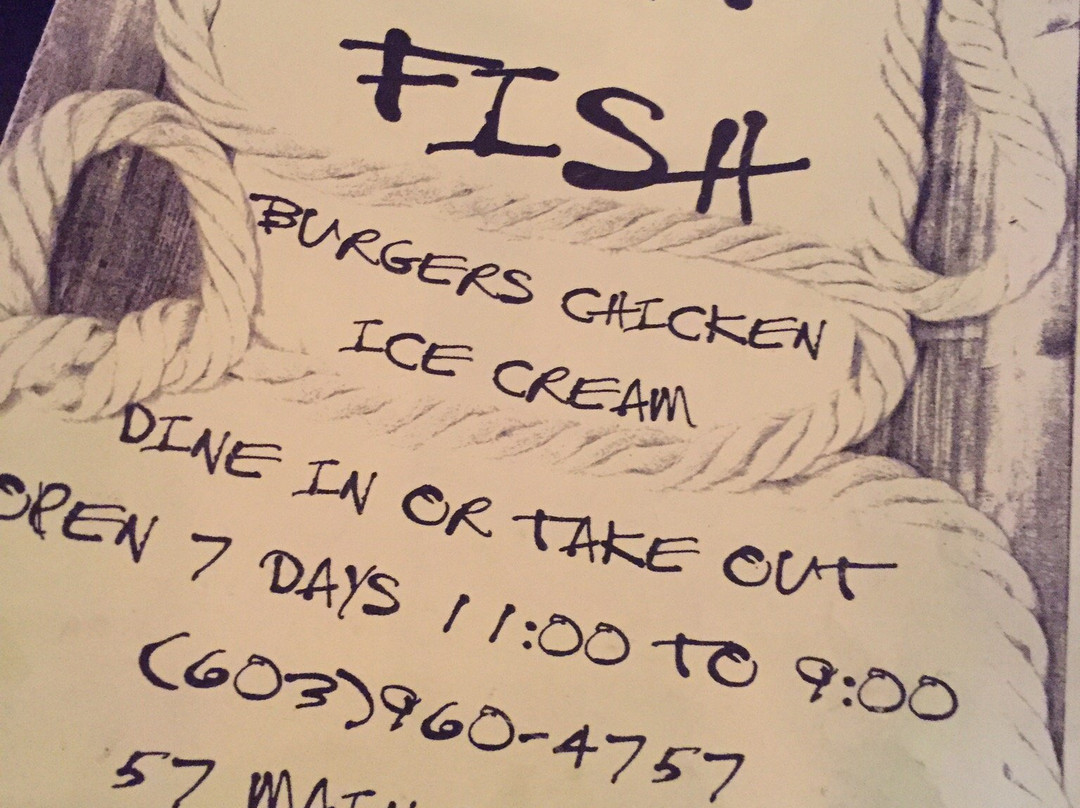 FISH
BURGERS CHICKEN
ICE CREAM
DINE IN OR TAKE OUT
OPEN 7 DAYS 11:00 TO 9:00
(603)960-4757
57 MAIN